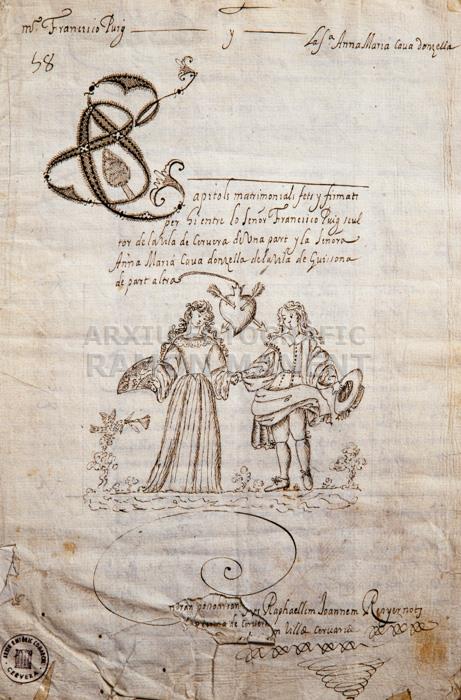 m.º Francisco Puig y La S.ª Anna Maria Cava donzella
58
Capitols matrimonials fets y firmats
per hi entre lo Señor Francisco Puig scul
tor de la vila de Cervera de una part y la Senora
Anna Maria Cava donzella de la vila de Guissona
de part altra
ARXIU FOTOGRÀFIC
RAMON MANENT
Raphaellem Joannem
in Villæ Cervariæ
CERVERA